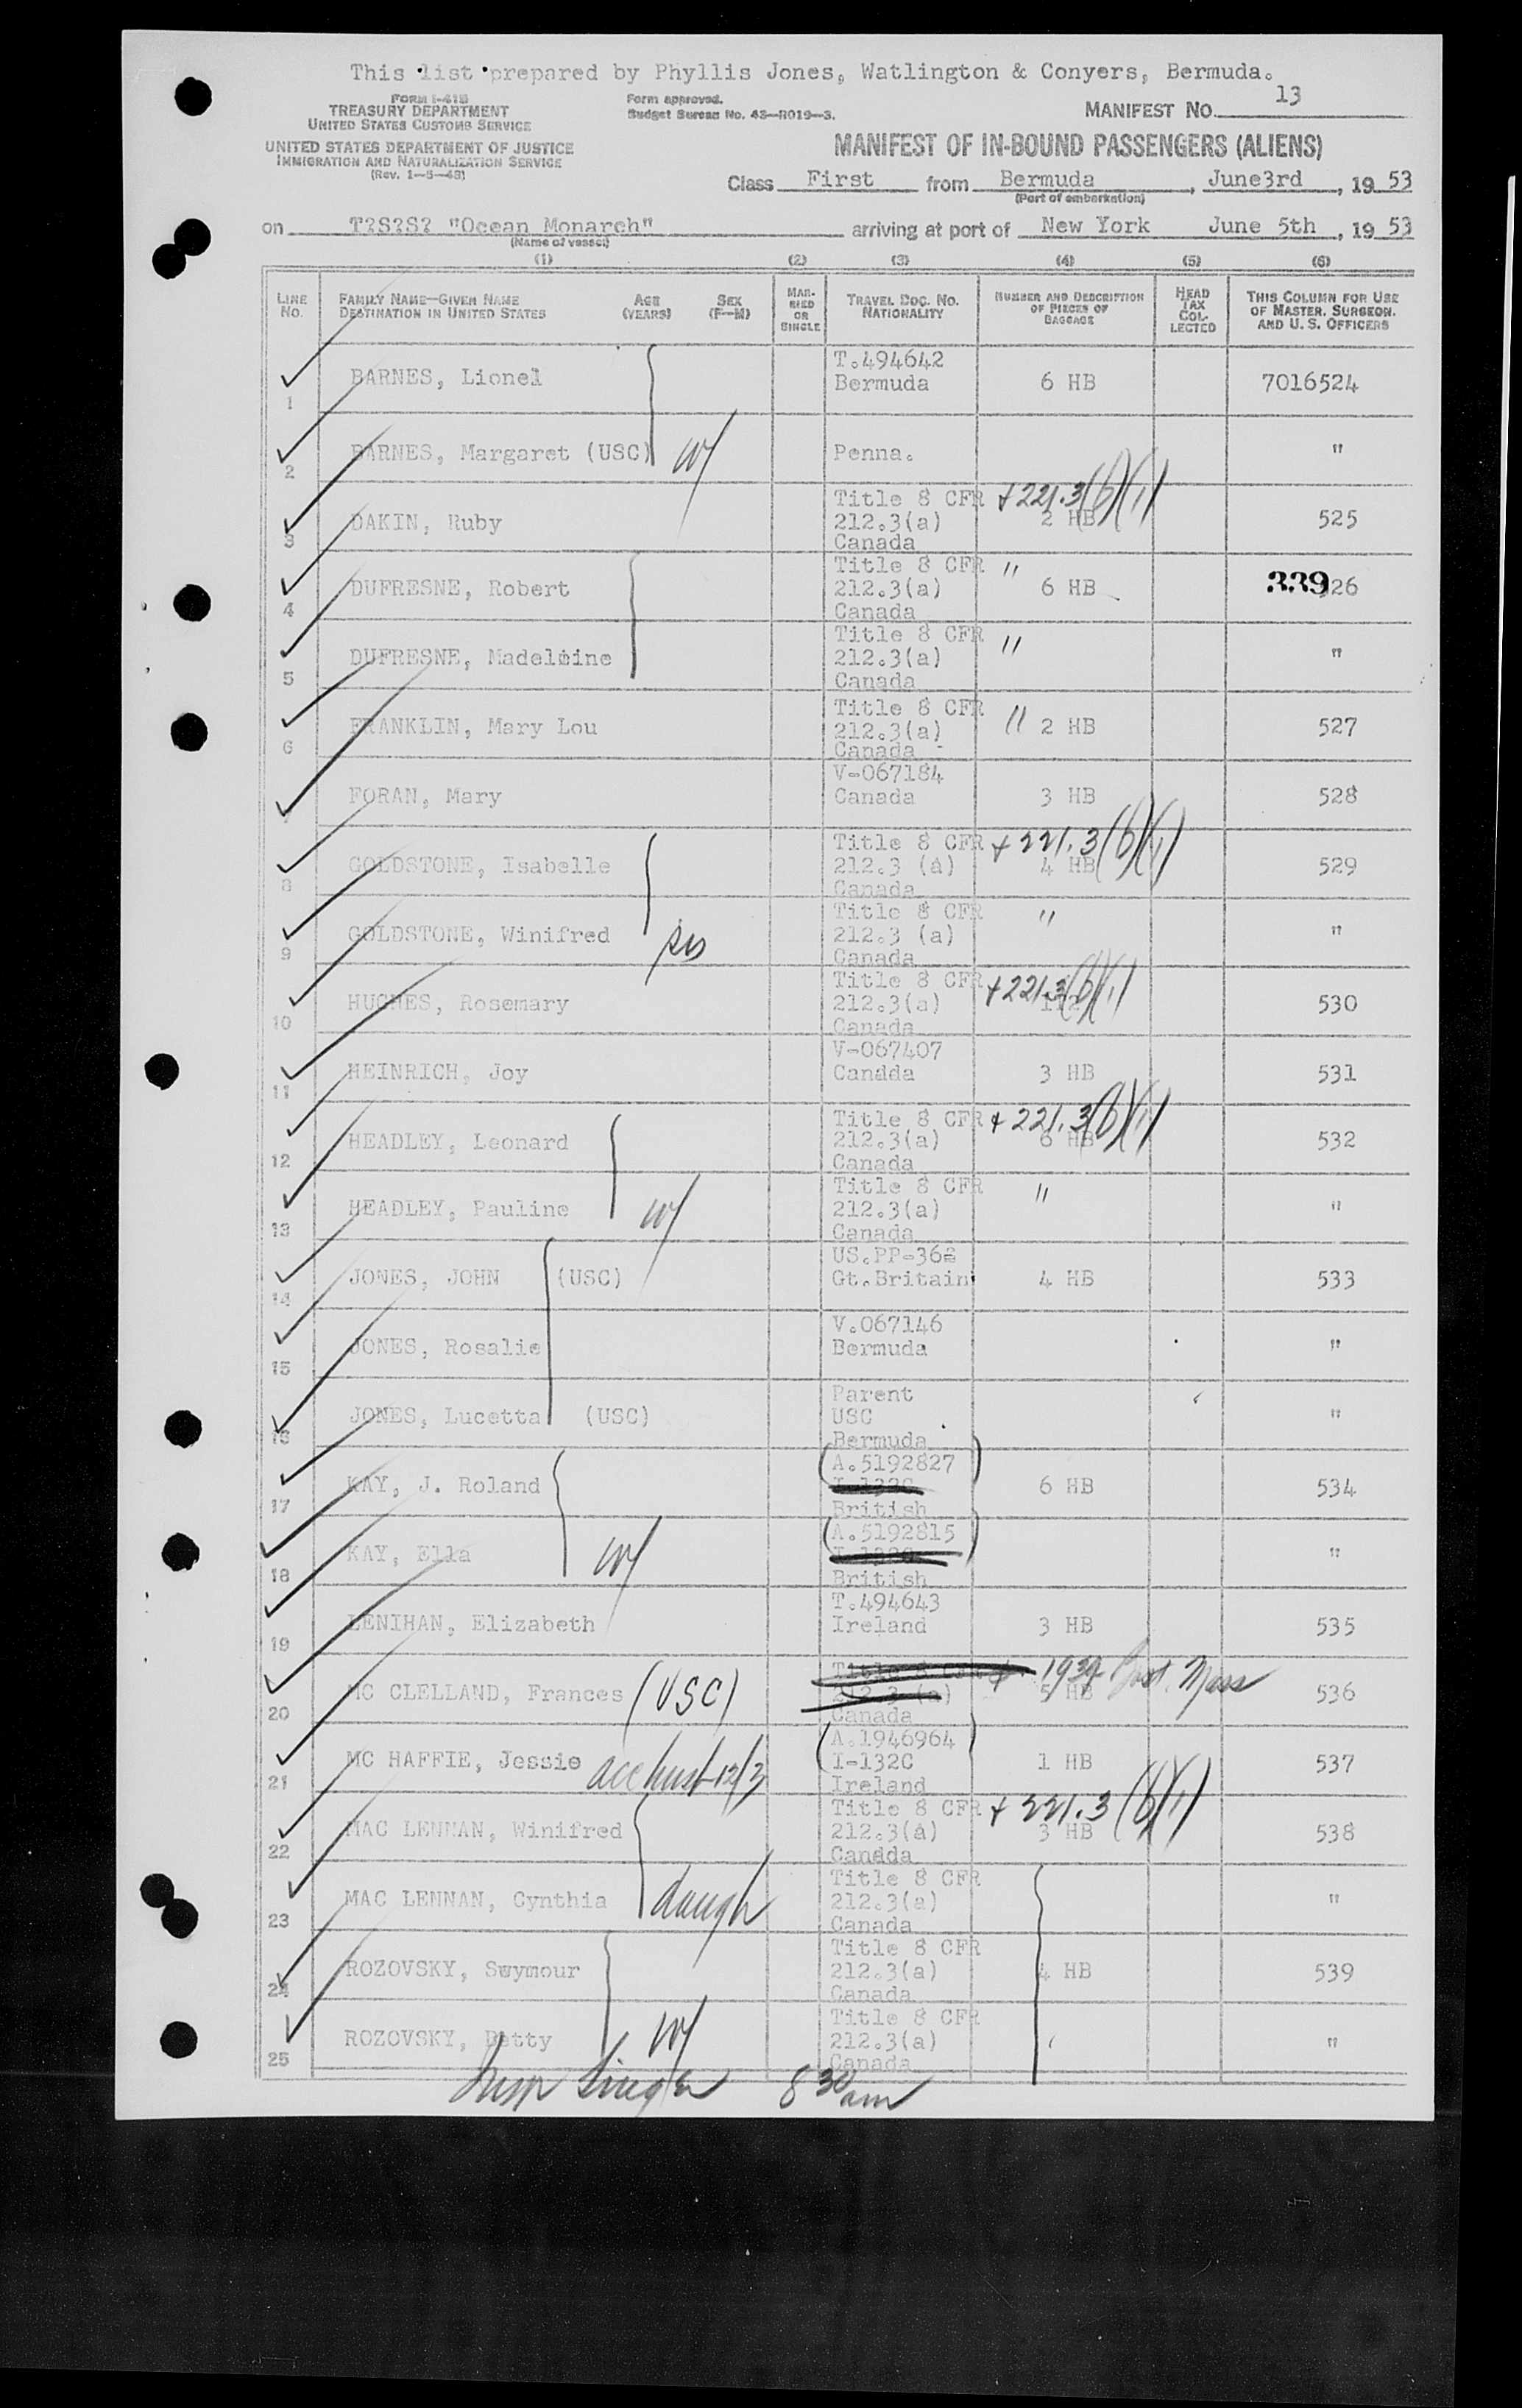 This list prepared by Phyllis Jones, Watlington & Conyers, Bermuda.
FORM I-415
TREASURY DEPARTMENT
UNITED STATES CUSTOMS SERVICE
UNITED STATES DEPARTMENT OF JUSTICE
IMMIGRATION AND NATURALIZATION SERVICE
(Rev. 1-5-48)
Form approved.
Budget Bureau No. 43-R019-3.
MANIFEST NO. 13
MANIFEST OF IN-BOUND PASSENGERS (ALIENS)
Class First from Bermuda, June3rd, 1953
(Port of embarkation)
on T?S?S? "Ocean Monarch" arriving at port of New York June 5th, 1953
(Name of vessel)
(1) (2) (3) (4) (5) (6)
LINE No. FAMILY NAME—GIVEN NAME DESTINATION IN UNITED STATES AGE (YEARS) SEX (F—M) MARRIED OR SINGLE TRAVEL DOC. NO. NATIONALITY NUMBER AND DESCRIPTION OF PIECES OF BAGGAGE HEAD TAX COLLECTED THIS COLUMN FOR USE OF MASTER, SURGEON, AND U. S. OFFICERS
1 BARNES, Lionel T.494642 Bermuda 6 HB 7016524
2 BARNES, Margaret (USC) W Penna. "
3 DAKIN, Ruby Title 8 CFR 212.3(a) Canada + 221.3(b)(1) 2 HB 525
4 DUFRESNE, Robert Title 8 CFR 212.3(a) Canada " 6 HB 339 26
5 DUFRESNE, Madeleine Title 8 CFR 212.3(a) Canada " "
6 FRANKLIN, Mary Lou Title 8 CFR 212.3(a) Canada " 2 HB 527
7 FORAN, Mary V-067184 Canada 3 HB 528
8 GOLDSTONE, Isabelle Title 8 CFR 212.3 (a) Canada + 221.3(b)(1) 4 HB 529
9 GOLDSTONE, Winifred sis Title 8 CFR 212.3 (a) Canada " "
10 HUGHES, Rosemary Title 8 CFR 212.3(a) Canada + 221.3(b)(1) 530
11 HEINRICH, Joy V-067407 Canada 3 HB 531
12 HEADLEY, Leonard Title 8 CFR 212.3(a) Canada + 221.3(b)(1) 6 HB 532
13 HEADLEY, Pauline W Title 8 CFR 212.3(a) Canada " "
14 JONES, JOHN (USC) US.PP-362 Gt.Britain 4 HB 533
15 JONES, Rosalie V.067146 Bermuda "
16 JONES, Lucetta (USC) Parent USC Bermuda "
17 KAY, J. Roland (A.5192827) I-132C British 6 HB 534
18 KAY, Ella W (A.5192815) I-132C British "
19 LENIHAN, Elizabeth T.494643 Ireland 3 HB 535
20 MC CLELLAND, Frances (USC) Title 8 CFR 212.3 (a) Canada 1939 Mass 5 HB 536
21 MC HAFFIE, Jessie (A.1946964) I-132C Ireland 1 HB 537
22 MAC LENNAN, Winifred Title 8 CFR 212.3(a) Canada + 221.3(b)(1) 3 HB 538
23 MAC LENNAN, Cynthia daugh Title 8 CFR 212.3(a) Canada "
24 ROZOVSKY, Swymour Title 8 CFR 212.3(a) Canada 4 HB 539
25 ROZOVSKY, Betty W Title 8 CFR 212.3(a) Canada "
8 30 am